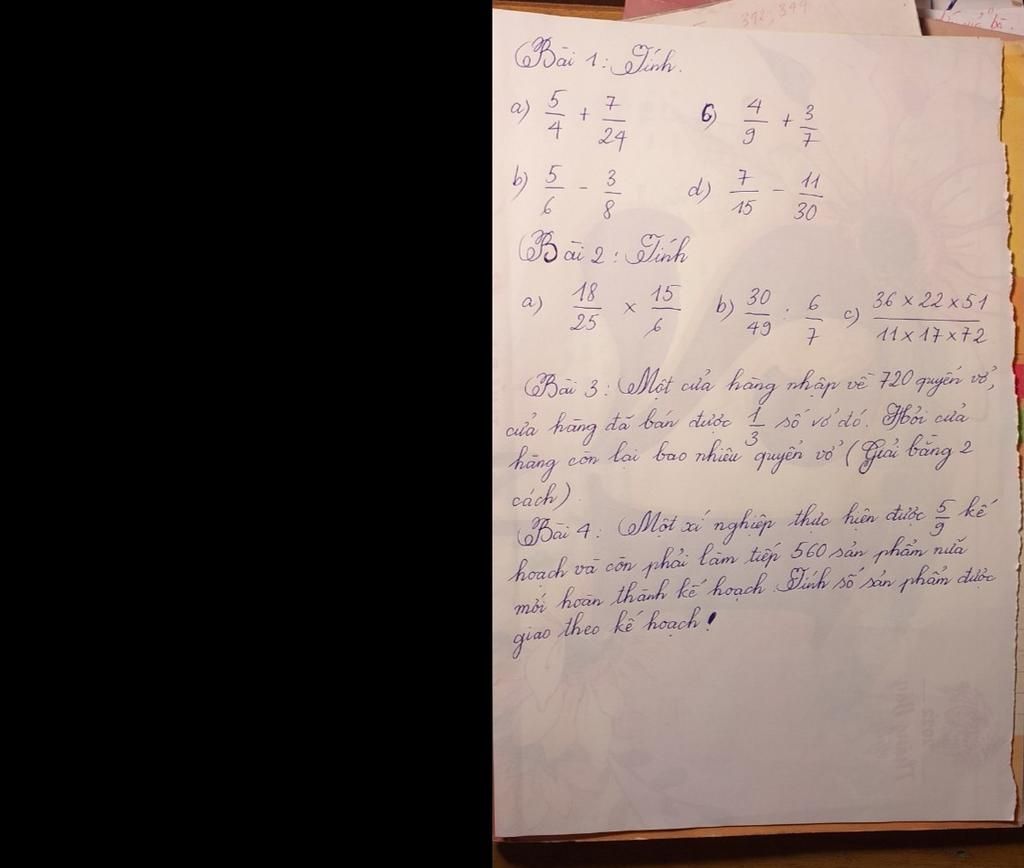 392, 394
Bài 1: Tính.
a) 5/4 + 7/24 6) 4/9 + 3/7
b) 5/6 - 3/8 d) 7/15 - 11/30
Bài 2: Tính
a) 18/25 x 15/6 b) 30/49 : 6/7 c) 36 x 22 x 51 / 11 x 17 x 72
Bài 3: Một cửa hàng nhập về 720 quyển vở,
cửa hàng đã bán được 1/3 số vở đó. Hỏi cửa
hàng còn lại bao nhiêu quyển vở (Giải bằng 2
cách).
Bài 4: Một xí nghiệp thực hiện được 5/9 kế
hoạch và còn phải làm tiếp 560 sản phẩm nữa
mới hoàn thành kế hoạch. Tính số sản phẩm được
giao theo kế hoạch!